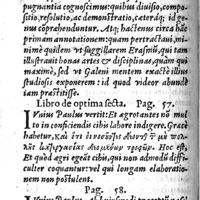 pugnantia cognoscimus: quibus diuisio, compo-
sitio, resolutio, ac demonstratio, caterdq; id ge-
nus comprehenduntur. Atq; hactenus circa hāc
primam annotationem: quam pertractaui, mi-
nimè quidem vt suggillarem Erasmũ, qui tam
illustrauit bonas artes & disciplinas, quàm qui
maximè, sed vt Galeni mentem exactè illius
studiosis exponerem: id quod videor abundè
iam præstitisse.
Libro de optima secta. Pag. 57.
IVnius Paulus vertit: Et ægrotantes nō mul
to in conficiendis cibis labore indigere. Græcè
Hoc est,
Et quòd ægri egeāt cibis, qui non admodũ diffi-
culter coquantur: vel qui longam elaboratio-
nem non postulent.
Pag. 58.